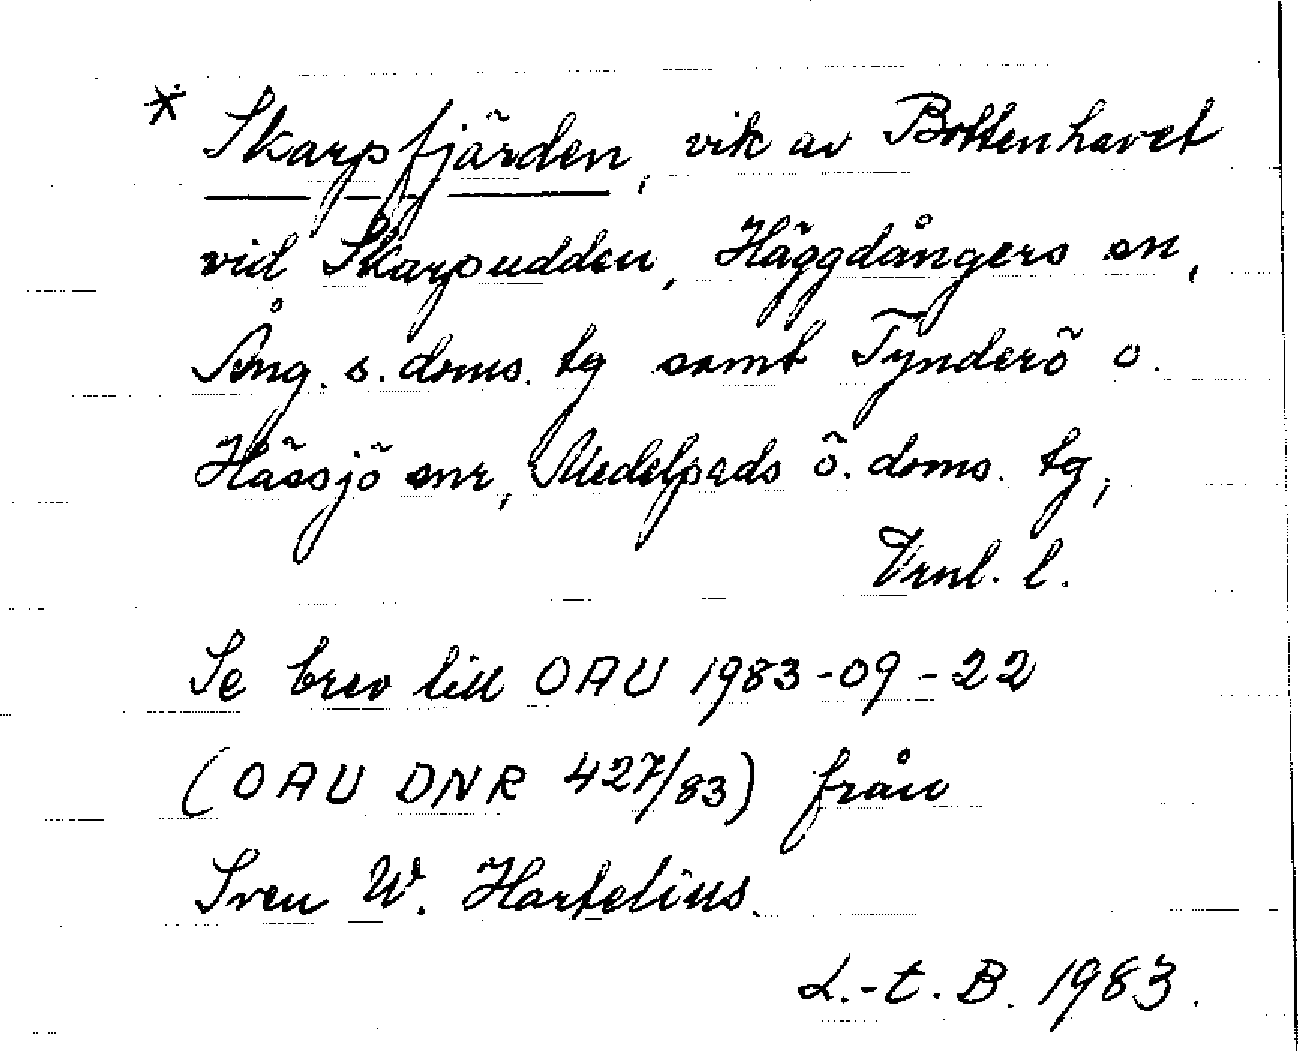 * Skarpfjärden, vik av Bottenhavet
vid Skarpudden, Häggdångers sn,
Ång. s. doms. tg samt Tynderö o.
Hässjö snr, Medelpads ö. doms. tg,
Vrnl. l.
Se brev till OAU 1983-09-22
(OAU DNR 427/83) från
Sven W. Hartelius.
L.-t. B. 1983.